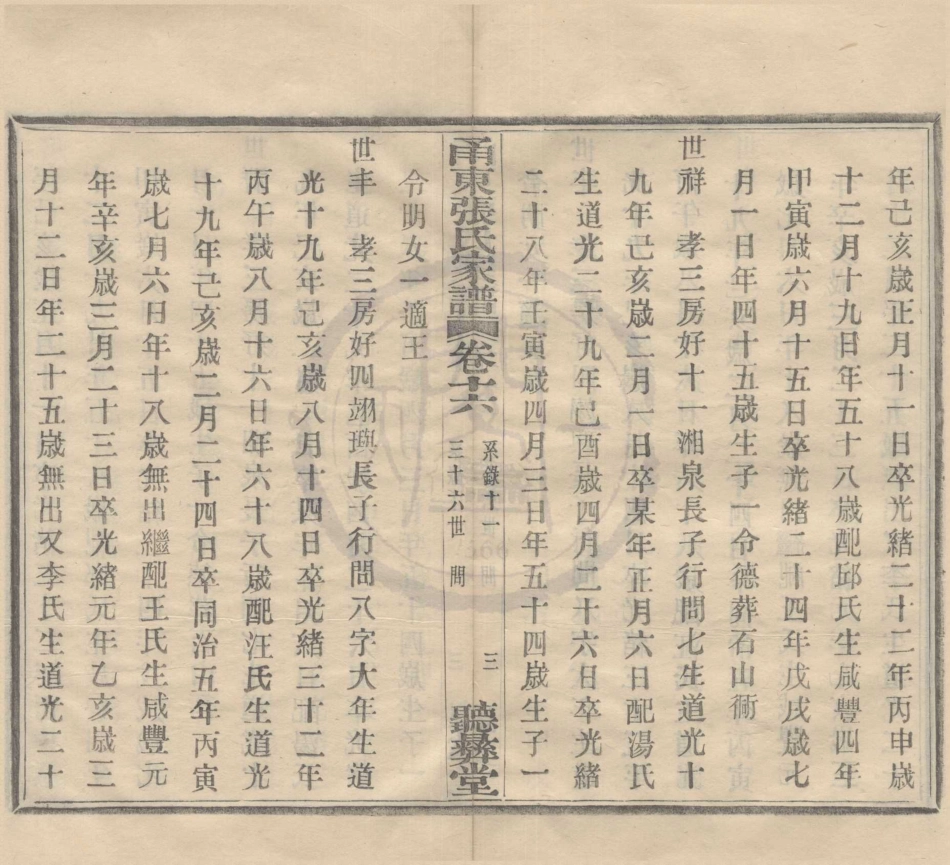 年己亥歲正月十一日卒光緒二十二年丙申歲
十二月十九日年五十八歲配邱氏生咸豐四年
甲寅歲六月十五日卒光緒二十四年戊戌歲七
月一日年四十五歲生子一令德葬石山衕
世祥孝三房好十一湘泉長子行問七生道光十
九年己亥歲二月一日卒某年正月六日配湯氏
生道光二十九年己酉歲四月二十六日卒光緒
二十八年壬寅歲四月三日年五十四歲生子一
甬東張氏家譜 卷十六 系錄十一 三十六世 問 三 聽彝堂
令明女一適王
世丰孝三房好四翊璵長子行問八字大年生道
光十九年己亥歲八月十四日卒光緒三十二年
丙午歲八月十六日年六十八歲配汪氏生道光
十九年己亥歲二月二十四日卒同治五年丙寅
歲七月六日年十八歲無出繼配王氏生咸豐元
年辛亥歲三月二十三日卒光緒元年乙亥歲三
月十二日年二十五歲無出又李氏生道光二十